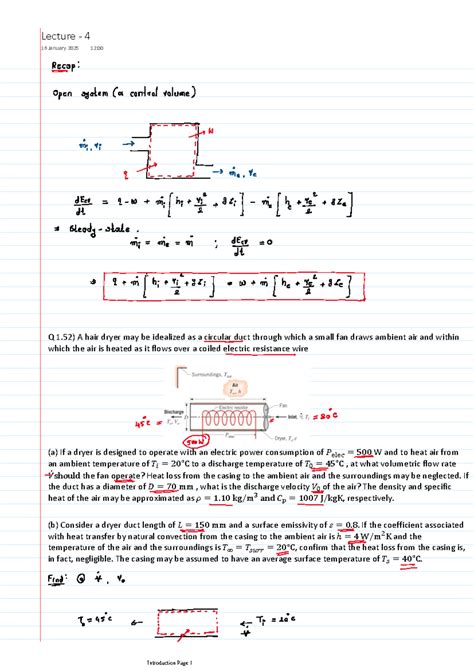 Lecture - 4
16 January 2025 12:00
Recap:
Open system (a control volume)
w
ṁi, vi
q
ṁe, ve
dEcv/dt = q - w + ṁi [hi + vi²/2 + gZi] - ṁe [he + ve²/2 + gZe]
⇒ Steady-state.
ṁi = ṁe = ṁ ; dEcv/dt = 0
⇒ q + ṁ [hi + vi²/2 + gZi] = w + ṁ [he + ve²/2 + gZe]
Q 1.52) A hair dryer may be idealized as a circular duct through which a small fan draws ambient air and within
which the air is heated as it flows over a coiled electric resistance wire
Surroundings, Tsur
Air
T∞, h
Electric resistor
Fan
Discharge
To, Vo
D
Inlet, ∀, Ti
= 20°C
45°C =
Pelec
Dryer, Ts, ε
500W
(a) If a dryer is designed to operate with an electric power consumption of Pelec = 500 W and to heat air from
an ambient temperature of Ti = 20°C to a discharge temperature of T0 = 45°C , at what volumetric flow rate
∀ should the fan operate? Heat loss from the casing to the ambient air and the surroundings may be neglected. If
the duct has a diameter of D = 70 mm , what is the discharge velocity V0 of the air? The density and specific
heat of the air may be approximated as ρ = 1.10 kg/m³ and Cp = 1007 J/kgK, respectively.
(b) Consider a dryer duct length of L = 150 mm and a surface emissivity of ε = 0.8. If the coefficient associated
with heat transfer by natural convection from the casing to the ambient air is h = 4 W/m²K and the
temperature of the air and the surroundings is T∞ = Tsurr = 20°C, confirm that the heat loss from the casing is,
in fact, negligible. The casing may be assumed to have an average surface temperature of Ts = 40°C.
Find: @ ∀, vo
To = 45°C
Ti = 20°C
∀
Introduction Page 1